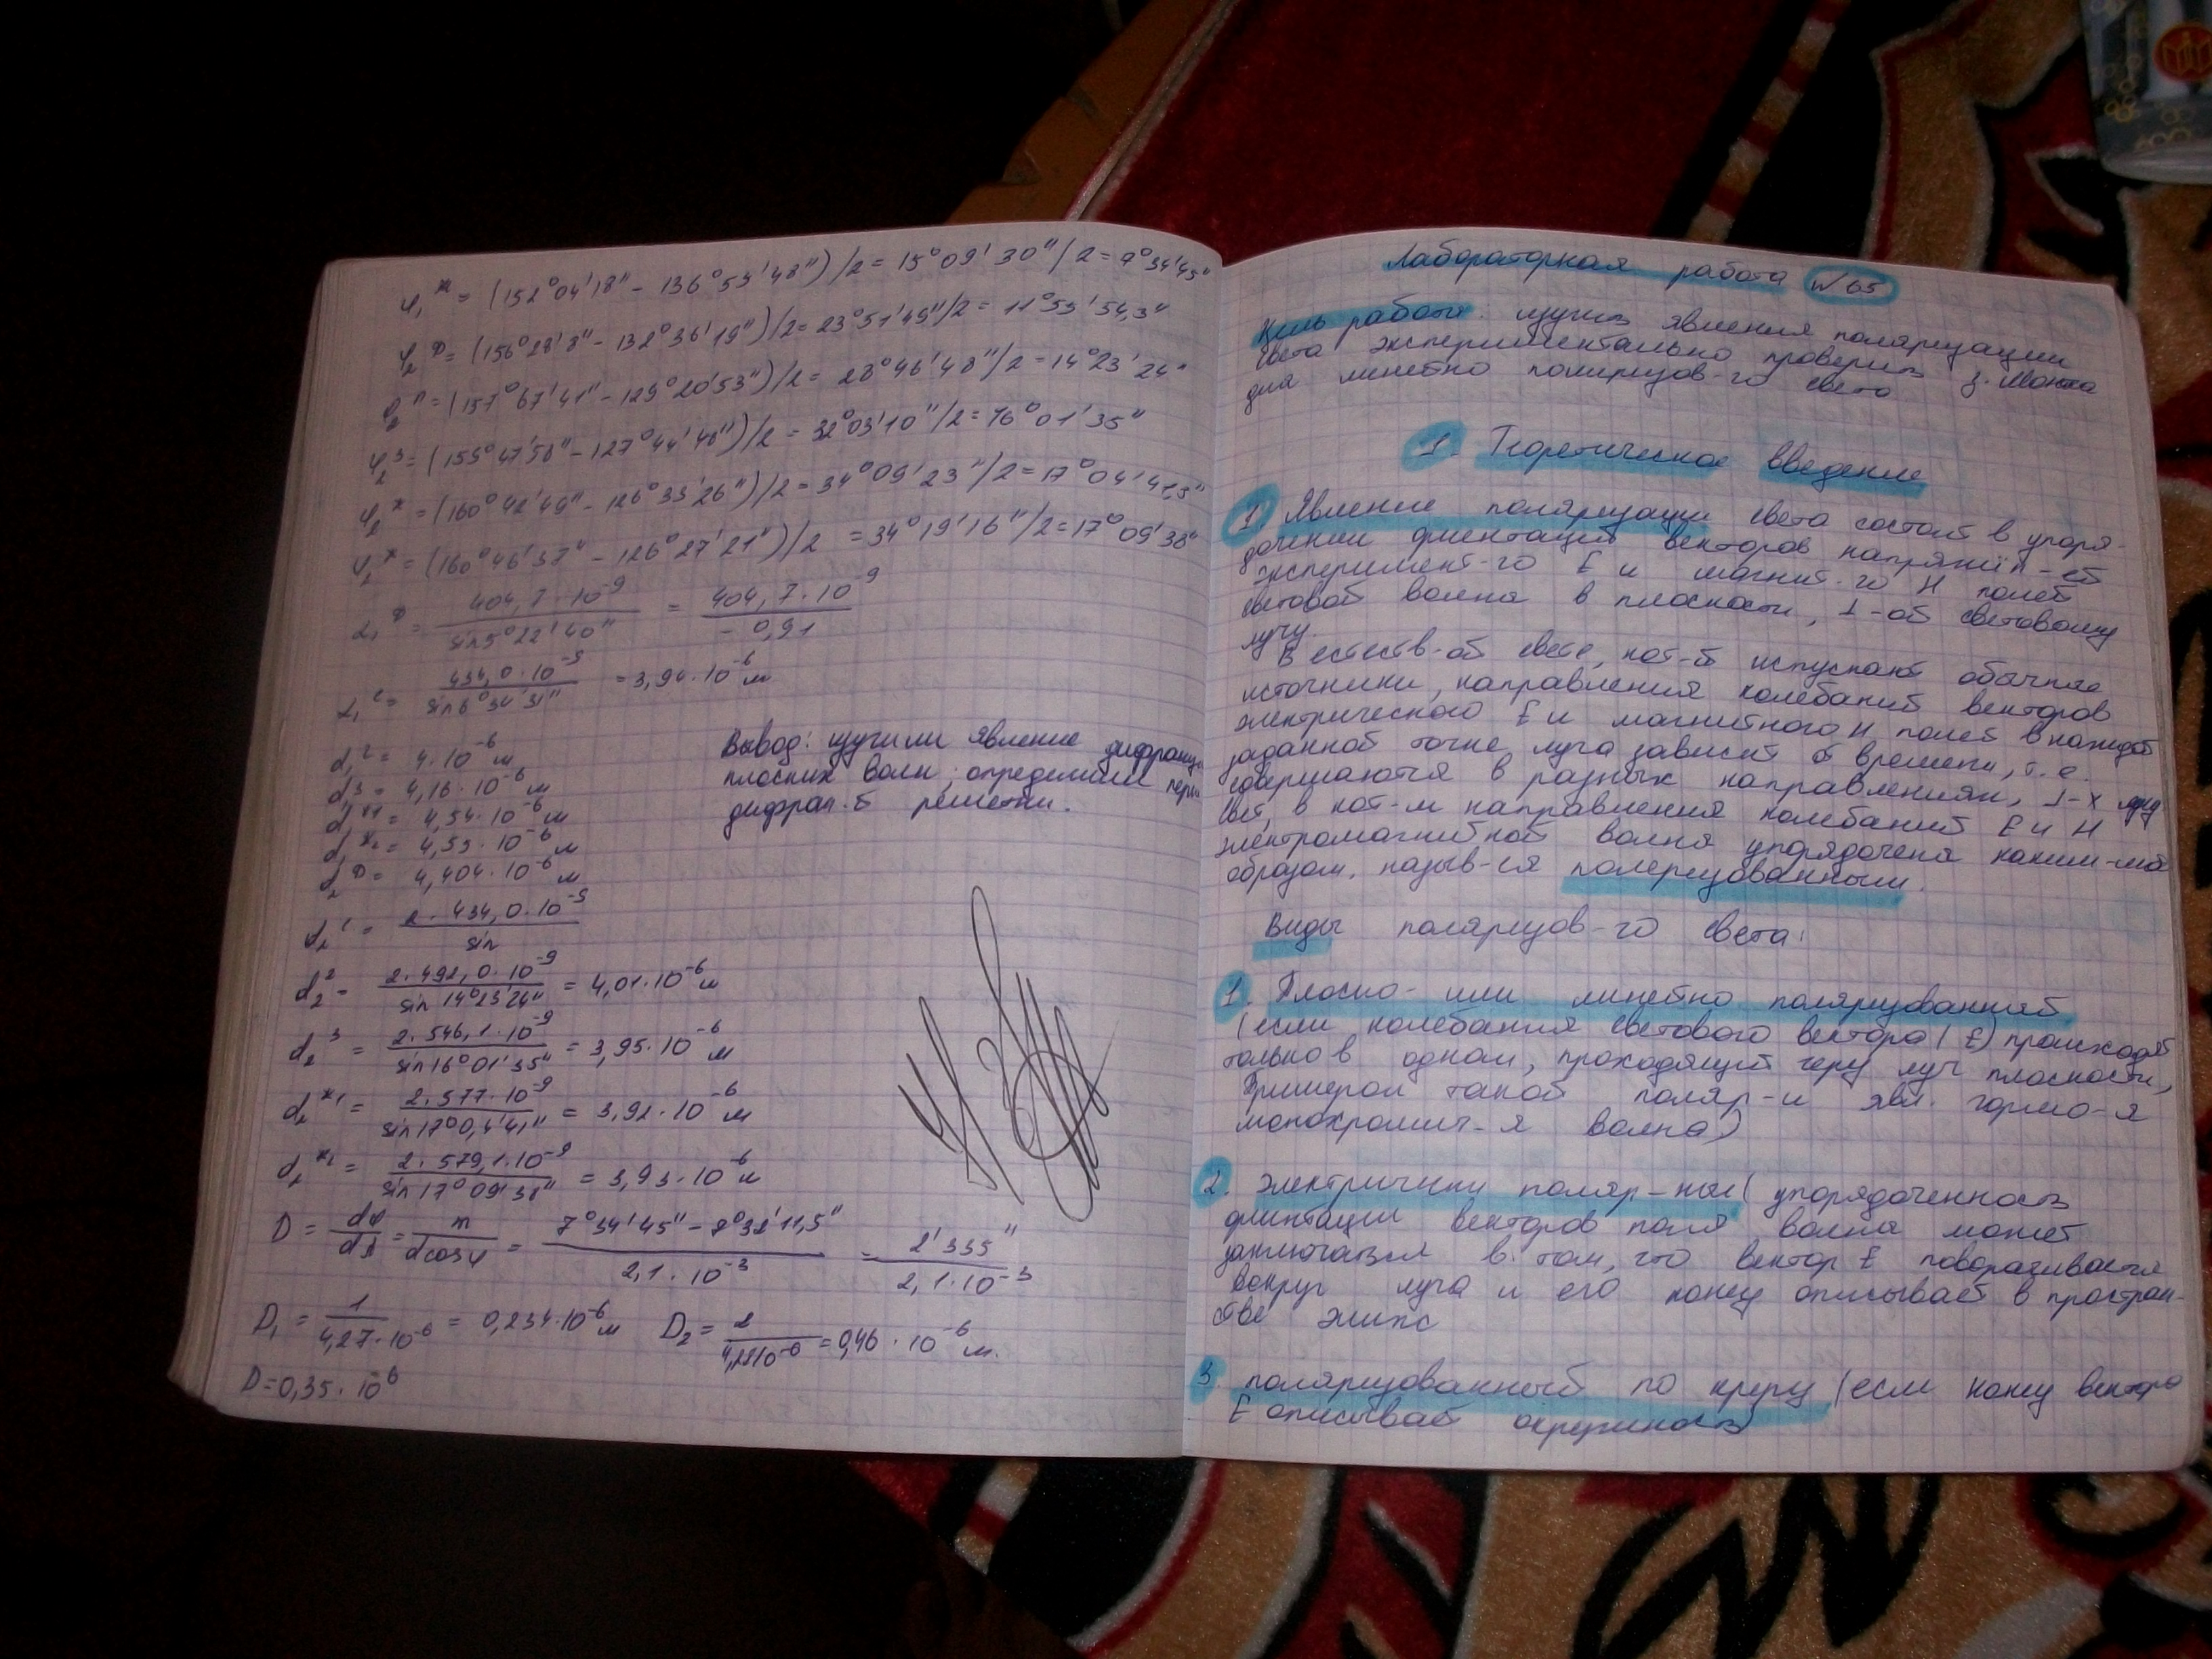 φ₁ˣ = (152°04'18" - 136°53'48")/2 = 15°09'30"/2 = 7°34'45"
φ₂ᶲ = (156°28'8" - 132°36'19")/2 = 23°51'49"/2 = 11°55'54,3"
φ₂ⁿ = (157°67'41" - 129°20'53")/2 = 28°46'48"/2 = 14°23'24"
φ₂³ = (159°47'58" - 127°44'48")/2 = 32°03'10"/2 = 16°01'35"
φ₂ˣ = (160°42'49" - 126°33'26")/2 = 34°09'23"/2 = 17°04'41,5"
φ₂ˣ = (160°46'37" - 126°27'21")/2 = 34°19'16"/2 = 17°09'38"
d₁ᶲ = 404,7·10⁻⁹ / sin5°22'40" = 404,7·10⁻⁹ / -0,91
d₁ᶜ = 434,0·10⁻⁹ / sin6°34'31" = 3,94·10⁻⁶ м
d₁² = 4·10⁻⁶ м
d₁³ = 4,16·10⁻⁶ м
d₁ˣ¹ = 4,54·10⁻⁶ м
d₁ˣ² = 4,53·10⁻⁶ м
d₂ᶲ = 4,404·10⁻⁶ м
d₂ᶜ = 2·434,0·10⁻⁹ / sin
d₂² - 2·492,0·10⁻⁹ / sin14°23'24" = 4,01·10⁻⁶ м
d₂³ = 2·546,1·10⁻⁹ / sin16°01'35" = 3,95·10⁻⁶ м
d₂ˣ¹ = 2·577·10⁻⁹ / sin17°0,4'41" = 3,92·10⁻⁶ м
d₂ˣ² = 2·579,1·10⁻⁹ / sin17°09'38" = 3,93·10⁻⁶ м
D = dφ/dλ = m/dcosφ = 7°34'45" - 7°32'11,5" / 2,1·10⁻³ = 2'335" / 2,1·10⁻³
D₁ = 1 / 4,27·10⁻⁶ = 0,234·10⁻⁶ м D₂ = 2 / 4,28·10⁻⁶ = 0,46·10⁻⁶ м.
D = 0,35·10⁶
Вывод: изучили явление дифракц
плоских волн, определили пери
дифрак-й решетки.
Лабораторная работа №65
Цель работы: изучить явления поляризации
света экспериментально проверить з. Малюса
для линейно поляризов-го света
1. Теоретическое введение
1) Явление поляризации света состоит в упоря-
дочении ориентаций векторов напряжён-ей
эксперимент-го E и магнит-го H полей
световой волны в плоскости, ⊥-ой световому
лучу.
В естеств-ой свете, кот-й испускают обычные
источники, направления колебаний векторов
электрического E и магнитного H полей в каждой
заданной точке луча зависит от времени, т.е.
совершаются в разных направлениях, ⊥-х лучу
Свет, в кот-м направления колебаний E и H
электромагнитной волны упорядочена каким-либо
образом, назыв-ся полеризованным.
Виды поляризов-го света:
1. Плоско- или линейно поляризованный
(если колебания светового вектора (E) происходят
только в одной, проходящий через луч плоскости,
Примером такой поляр-и явл. гармо-я
монохромич-я волна)
2. электрически поляр-ные (упорядоченность
ориентации векторов поля волна может
заключаться в том, что вектор E поворачивается
вокруг луча и его конец описывает в простран-
стве элипс
3. поляризованный по кругу (если конец вектора
E описывает окружность)